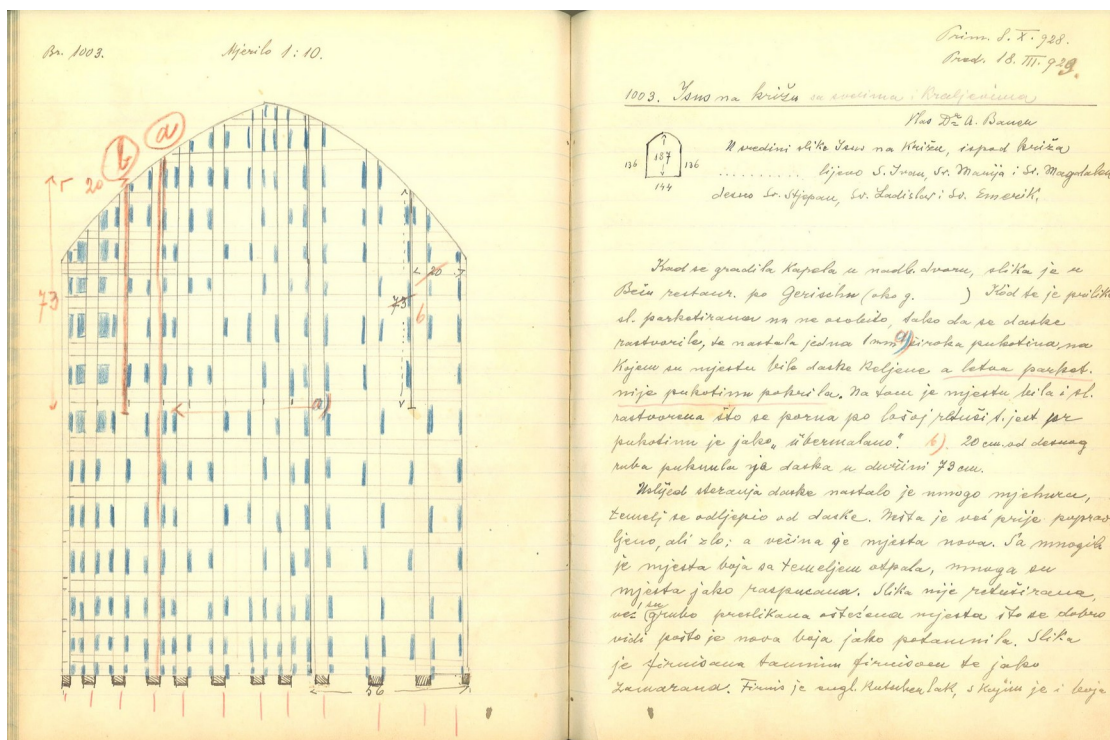 Br. 1003.
Mjerilo 1 : 10.
b
a
20
73
20
73
6
a)
56
Prim. 8. X. 928.
Pred. 18. III. 929.
1003. Isus na križu sa svetima i Kraljevima
Vlas Dr A. Bauer
136 187 136
144
U sredini slike Isus na Križu, ispod križa
.......... lijevo S. Ivan, Sv. Marija i Sv. Magdalena
desno Sv. Stjepan, Sv. Ladislav i Sv. Emerik.
Kad se gradila Kapela u nadb. dvoru, slika je u
Beču restaur. po Gerischu (oko g. ) Kod te je prilike
sl. parketirana na ne osobito, tako da se daske
rastvorile, te nastala jedna 1 mm široka pukotina, na
a)
Kojem su mjestu bile daske keljene a letva parket.
nije pukotinu pokrila. Na tom je mjestu bila i sl.
rastvorena što se pozna po lošoj retuši t. jest
pukotinu je jako „übermalano". b). 20 cm od desnog
ruba puknula je daska u dužini 73 cm.
Uslijed steranja daske nastalo je mnogo mjehura,
temelj se odljepio od daske. Nešta je već prije poprav
ljeno, ali zlo; a većina je mjesta nova. Sa mnogih
je mjesta boja sa temeljem otpala, mnoga su
mjesta jako raspucana. Slika nije retuširana,
već su grubo preslikana oštećena mjesta što se dobro
vidi pošto je nova boja jako potamnila. Slika
je firnisana tamnim firnisom te jako
zamazana. Firnis je engl. Kutscherlak, s kojim je i boja